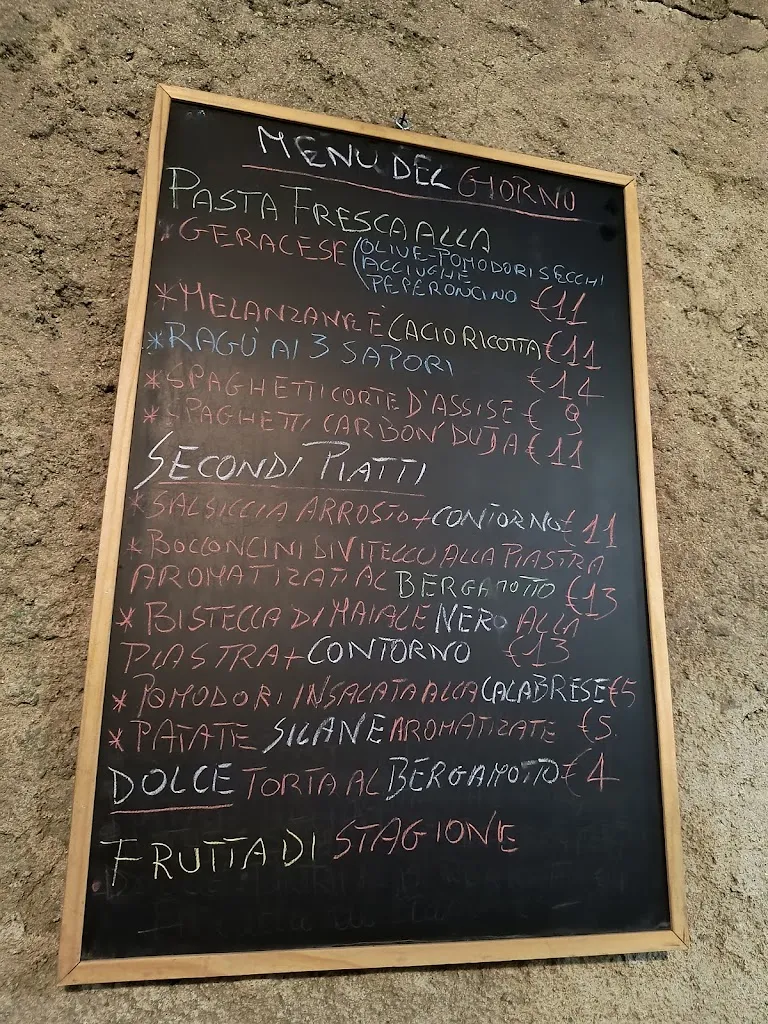 MENU DEL GIORNO
PASTA FRESCA ALLA
*GERACESE (OLIVE-POMODORI SECCHI
ACCIUGHE
PEPERONCINO €11
*MELANZANE E CACIO RICOTTA €11
*RAGÙ AI 3 SAPORI €14
*SPAGHETTI CORTE D'ASSISE € 9
*SPAGHETTI CARBON'DUJA €11
SECONDI PIATTI
*SALSICCIA ARROSTO+CONTORNO € 11
*BOCCONCINI DI VITELLO ALLA PIASTRA
AROMATIZATI AL BERGAMOTTO €13
*BISTECCA DI MAIALE NERO ALLA
PIASTRA+CONTORNO €13
*POMODORI INSALATA ALLA CALABRESE €5
*PATATE SILANE AROMATIZATE €5
DOLCE TORTA AL BERGAMOTTO € 4
FRUTTA DI STAGIONE